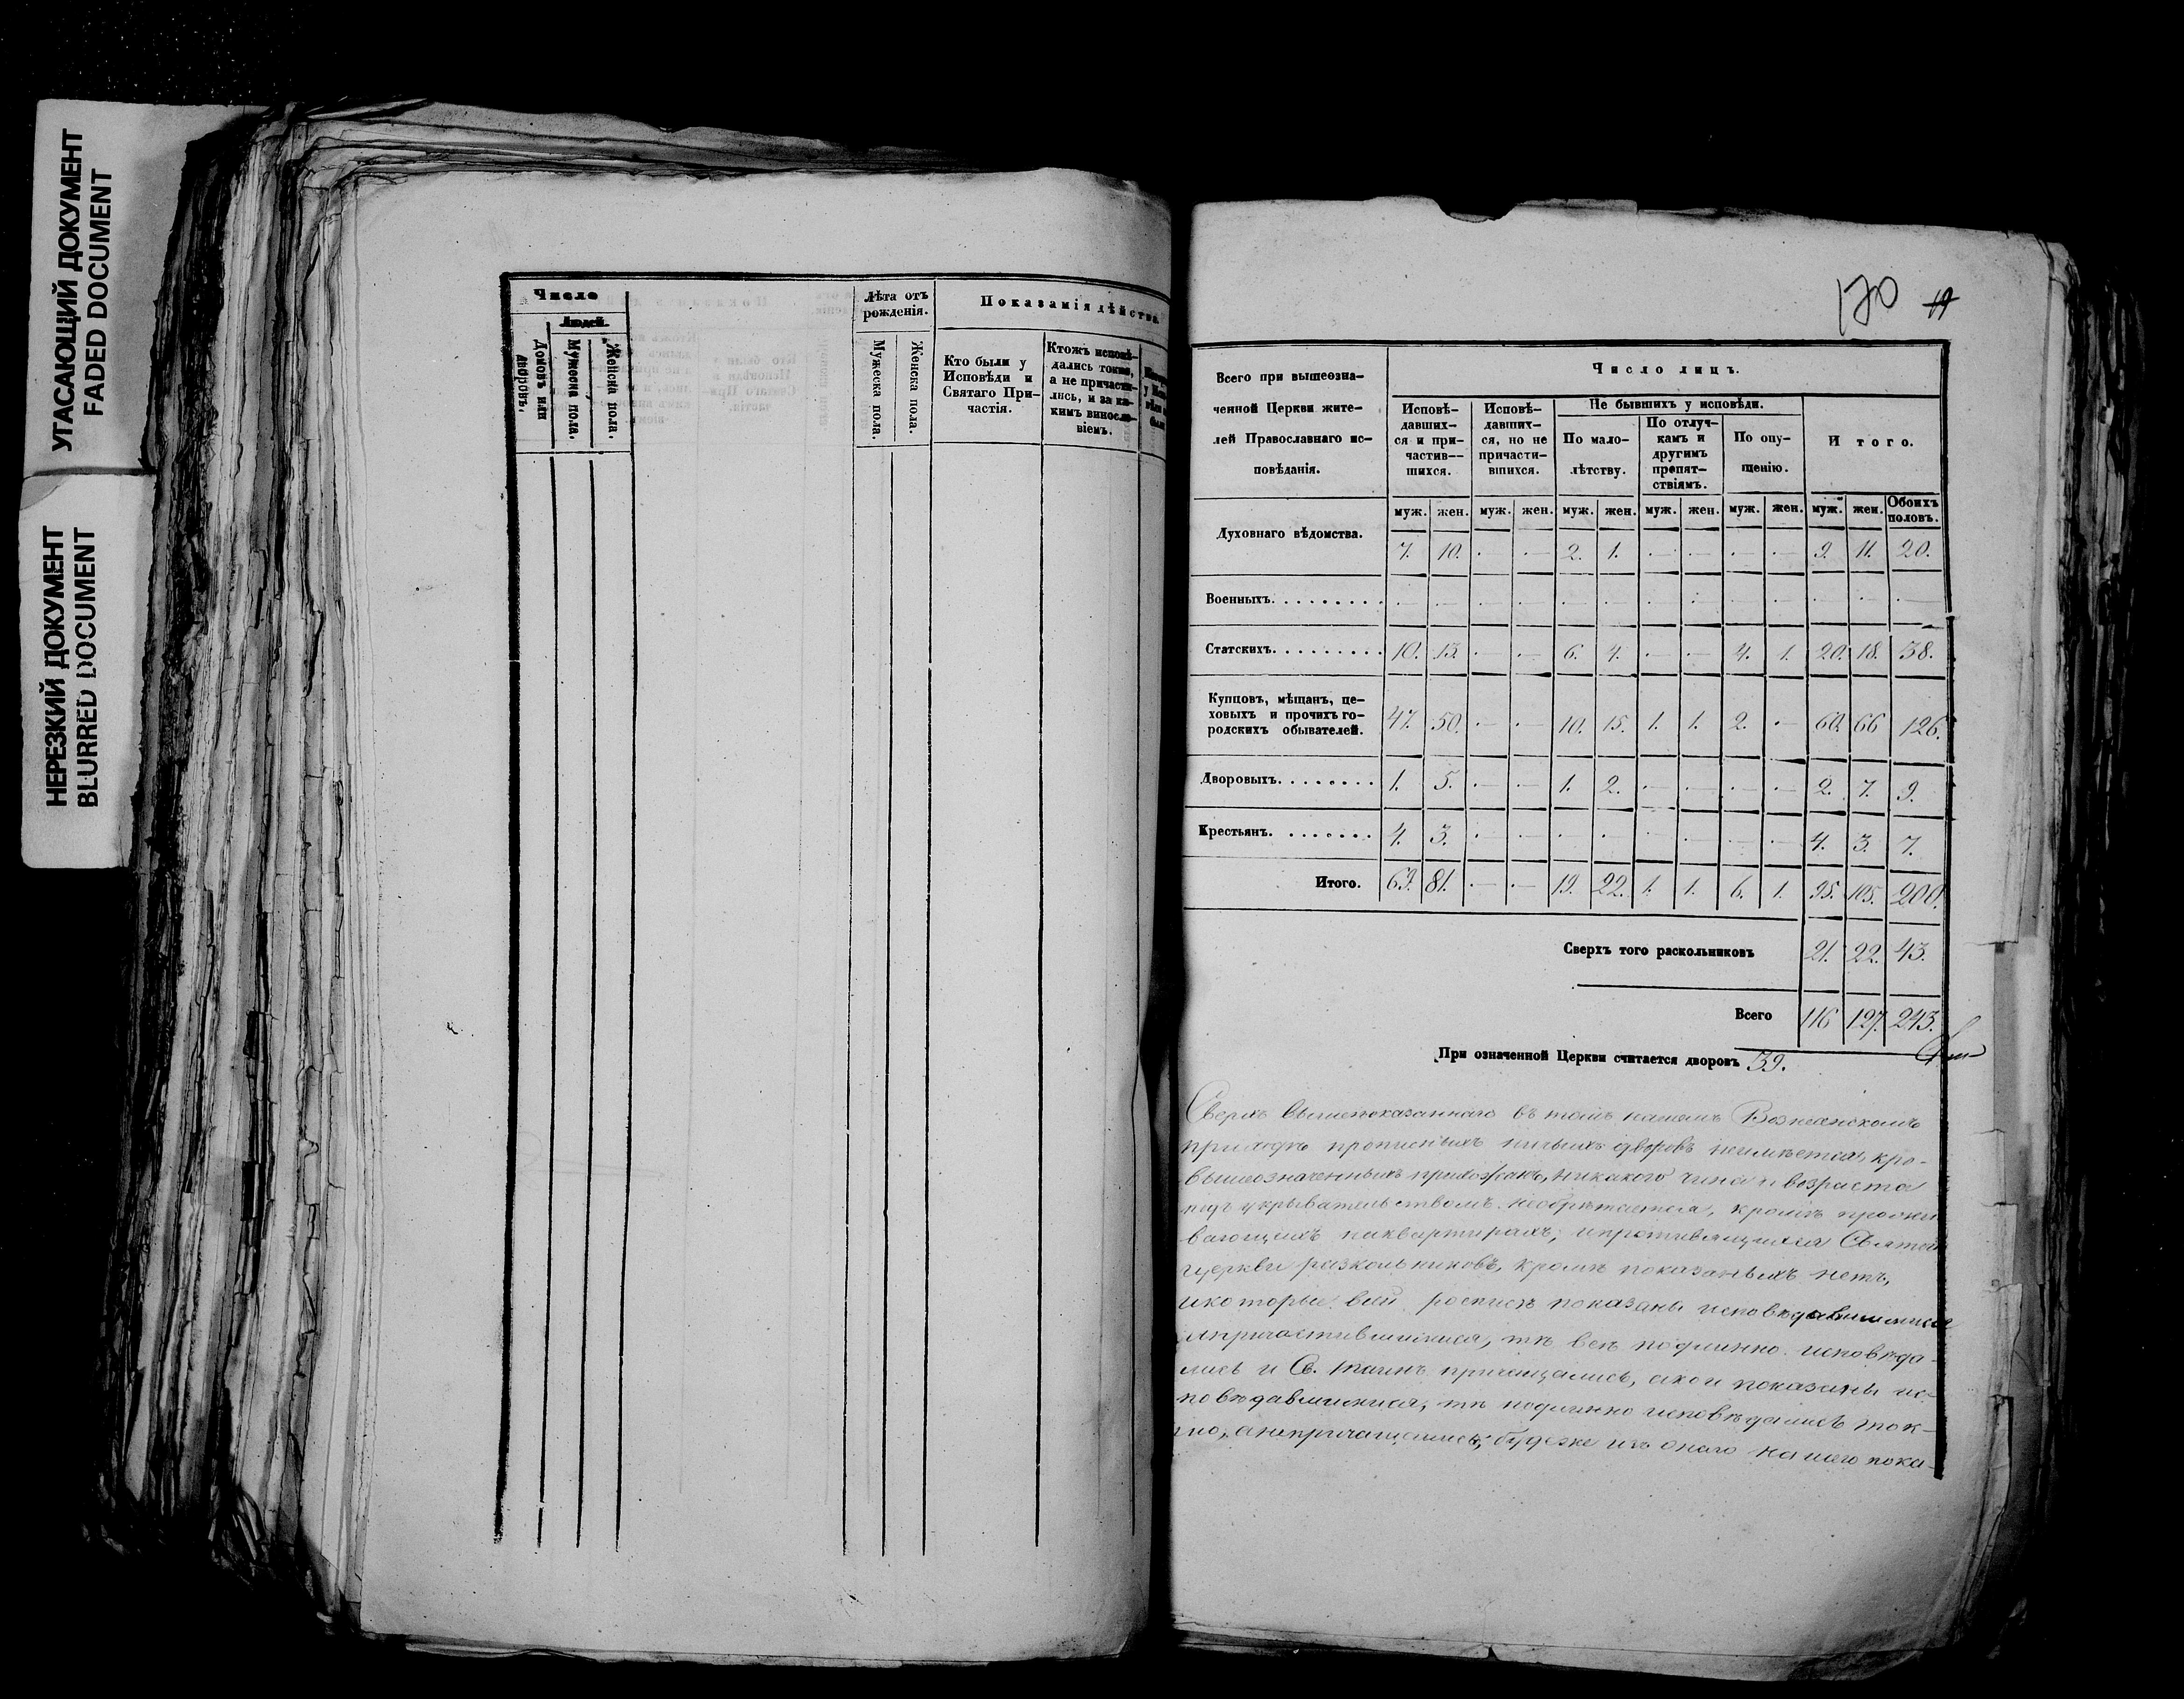 УГАСАЮЩИЙ ДОКУМЕНТ
FADED DOCUMENT
НЕРЕЗКИЙ ДОКУМЕНТ
BLURRED DOCUMENT
Число
Людей.
Домовъ или дворовъ.
Мужеска пола.
Женска пола.
Лѣта отъ
рожденія.
Мужеска пола.
Женска пола.
Показанія дѣйства.
Кто были у
Исповѣди и
Святаго При-
частія.
Ктожъ исповѣ-
дались токмо,
а не причасти-
лись, и за ка-
кимъ виносло-
віемъ.
170 19
Всего при вышеозна-
ченной Церкви жите-
лей Православнаго ис-
повѣданія.
Число лицъ.
Исповѣ-
давших-
ся и при-
частив-
шихся.
Исповѣ-
давших-
ся, но не
причасти-
вшихся.
Не бывшихъ у исповѣди.
По мало-
лѣтству.
По отлуч-
камъ и
другимъ
препят-
ствіямъ.
По опу-
щенію.
Итого.
муж. жен. муж. жен. муж. жен. муж. жен. муж. жен. муж. жен. Обоихъ половъ.
Духовнаго вѣдомства. 7. 10. - - 2. 1. - - - - 9. 11. 20.
Военныхъ. - - - - - - - - - - - - -
Статскихъ. 10. 13. - - 6. 4. - - 4. 1. 20. 18. 38.
Купцовъ, мѣщанъ, це-
ховыхъ и прочихъ го-
родскихъ обывателей. 47. 50. - - 10. 15. 1. 1. 2. - 60. 66 126.
Дворовыхъ. 1. 5. - - 1. 2. - - - - 2. 7. 9.
Крестьянъ. 4. 3. - - - - - - - - 4. 3. 7.
Итого. 69. 81. - - 19. 22. 1. 1. 6. 1. 95. 105. 200.
Сверхъ того раскольниковъ 21. 22. 43.
Всего 116 127. 243.
При означенной Церкви считается дворовъ 39.
Сверхъ вышепоказаннаго въ томъ нашемъ Вознесенскомъ
приходѣ прописныхъ ничьихъ дворовъ неимѣется, кро-
вышеозначенныхъ прихожанъ, никакого чина и возраста
подъ укрывательствомъ необрѣтается, кромѣ прожи
вающихъ наквартирахъ; ипротивящихся Святой
церкви разкольниковъ, кромѣ показаныхъ нетъ,
икоторые въ сей росписи показаны исповѣдавшимися
ипричастившимися, тѣ всѣ подлинно исповѣда-
лись и Св. таинъ причащались, акои показаны ис-
повѣдавшимися, тѣ подлинно исповѣдались ток-
мо, анепричащались; будеже изъ онаго нашего пока-